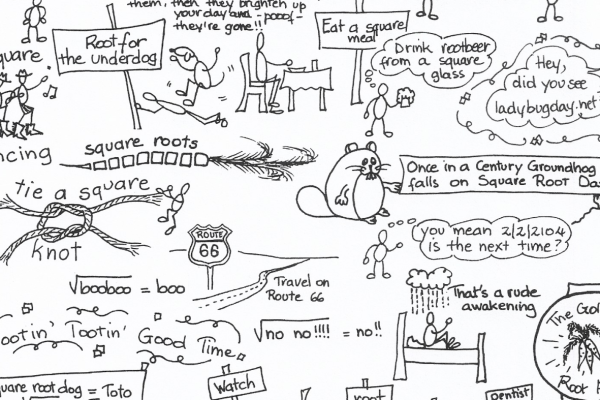 them, then they brighten up
your day and -poof-
they're gone!!
Eat a square
meal
Root for
the underdog
Drink rootbeer
from a square
glass
Hey,
did you see
ladybugday.net
square
ncing
square roots
Once in a Century Groundhog
falls on Square Root Da
tie a square
knot
you mean 2/2/2104
is the next time?
ROUTE
66
√booboo = boo
Travel on
Route 66
That's a rude
awakening
The Go
ootin' Tootin' Good Time
√no no!!!! = no!!
Root
quare root dog = Toto
Watch
root
Dentist